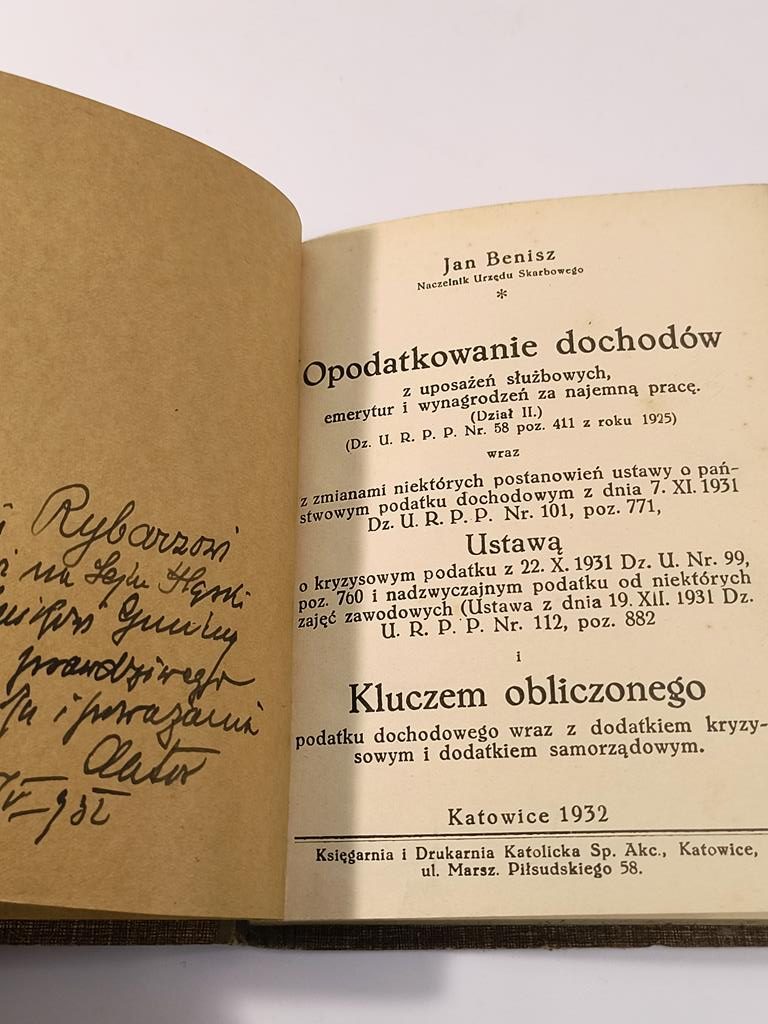 Rybarzowi
na Sejm Śląski
Gminy
prawdziwego
i poważania
Autor
Jan Benisz
Naczelnik Urzędu Skarbowego
*
Opodatkowanie dochodów
z uposażeń służbowych,
emerytur i wynagrodzeń za najemną pracę.
(Dział II.)
(Dz. U. R. P. P. Nr. 58 poz. 411 z roku 1925)
wraz
z zmianami niektórych postanowień ustawy o pań-
stwowym podatku dochodowym z dnia 7. XI. 1931
Dz. U. R. P. P. Nr. 101, poz. 771,
Ustawą
o kryzysowym podatku z 22. X. 1931 Dz. U. Nr. 99,
poz. 760 i nadzwyczajnym podatku od niektórych
zajęć zawodowych (Ustawa z dnia 19. XII. 1931 Dz.
U. R. P. P. Nr. 112, poz. 882
i
Kluczem obliczonego
podatku dochodowego wraz z dodatkiem kryzy-
sowym i dodatkiem samorządowym.
Katowice 1932
Księgarnia i Drukarnia Katolicka Sp. Akc., Katowice,
ul. Marsz. Piłsudskiego 58.